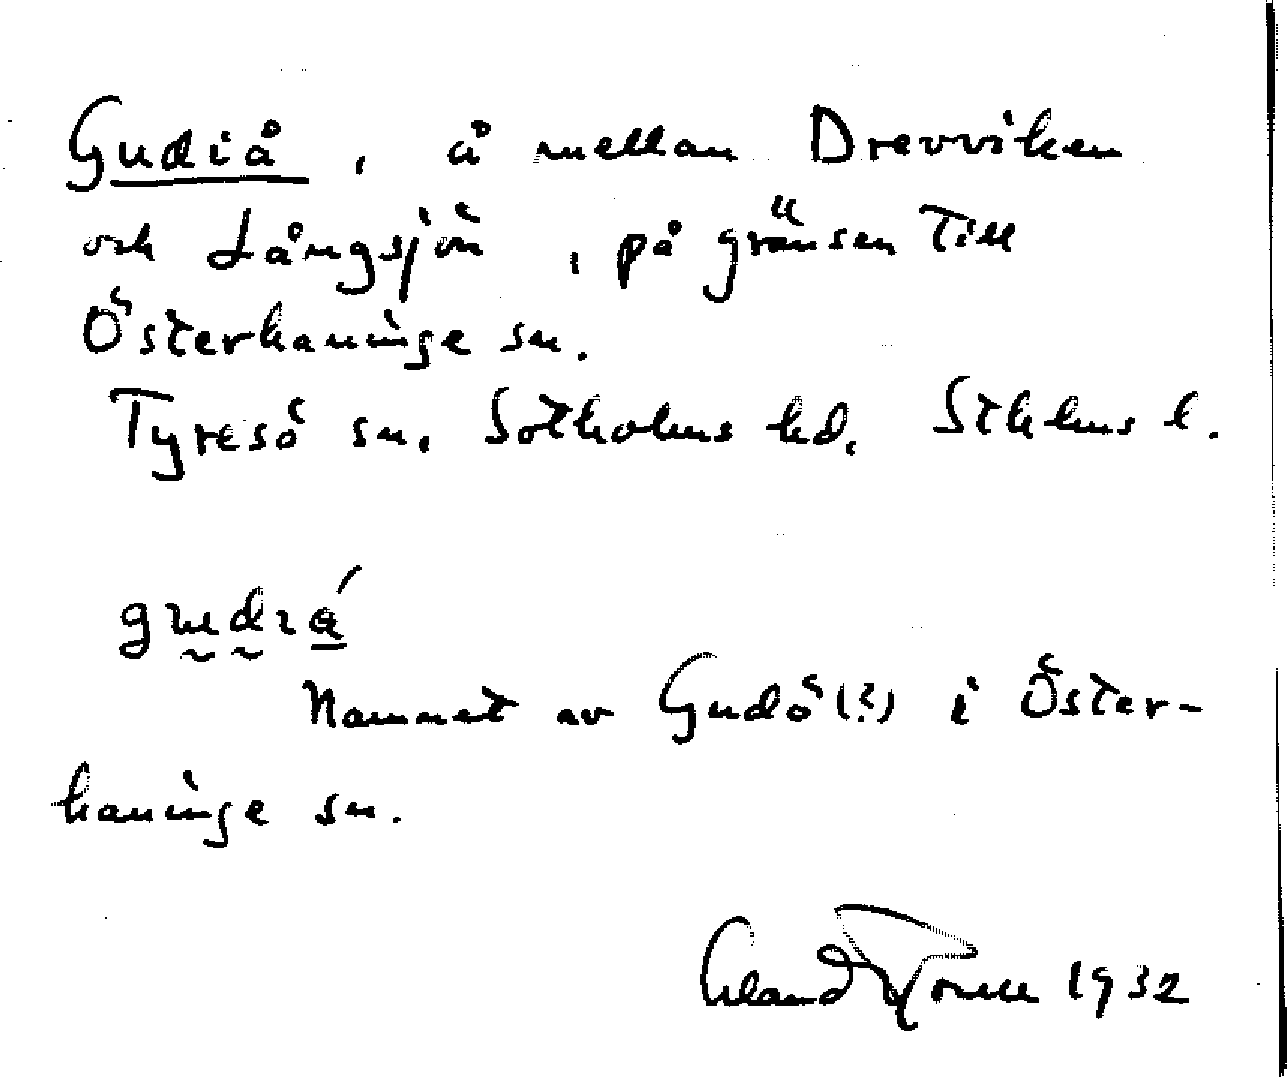 Gudiå, å mellan Drevviken
och Långsjön, på gränsen till
Österhaninge sn.
Tyresö sn. Sotholms hd. Sthlms l.
gudıá
Namnet av Gudö(?) i Öster-
haninge sn.
Erland Rosell 1932